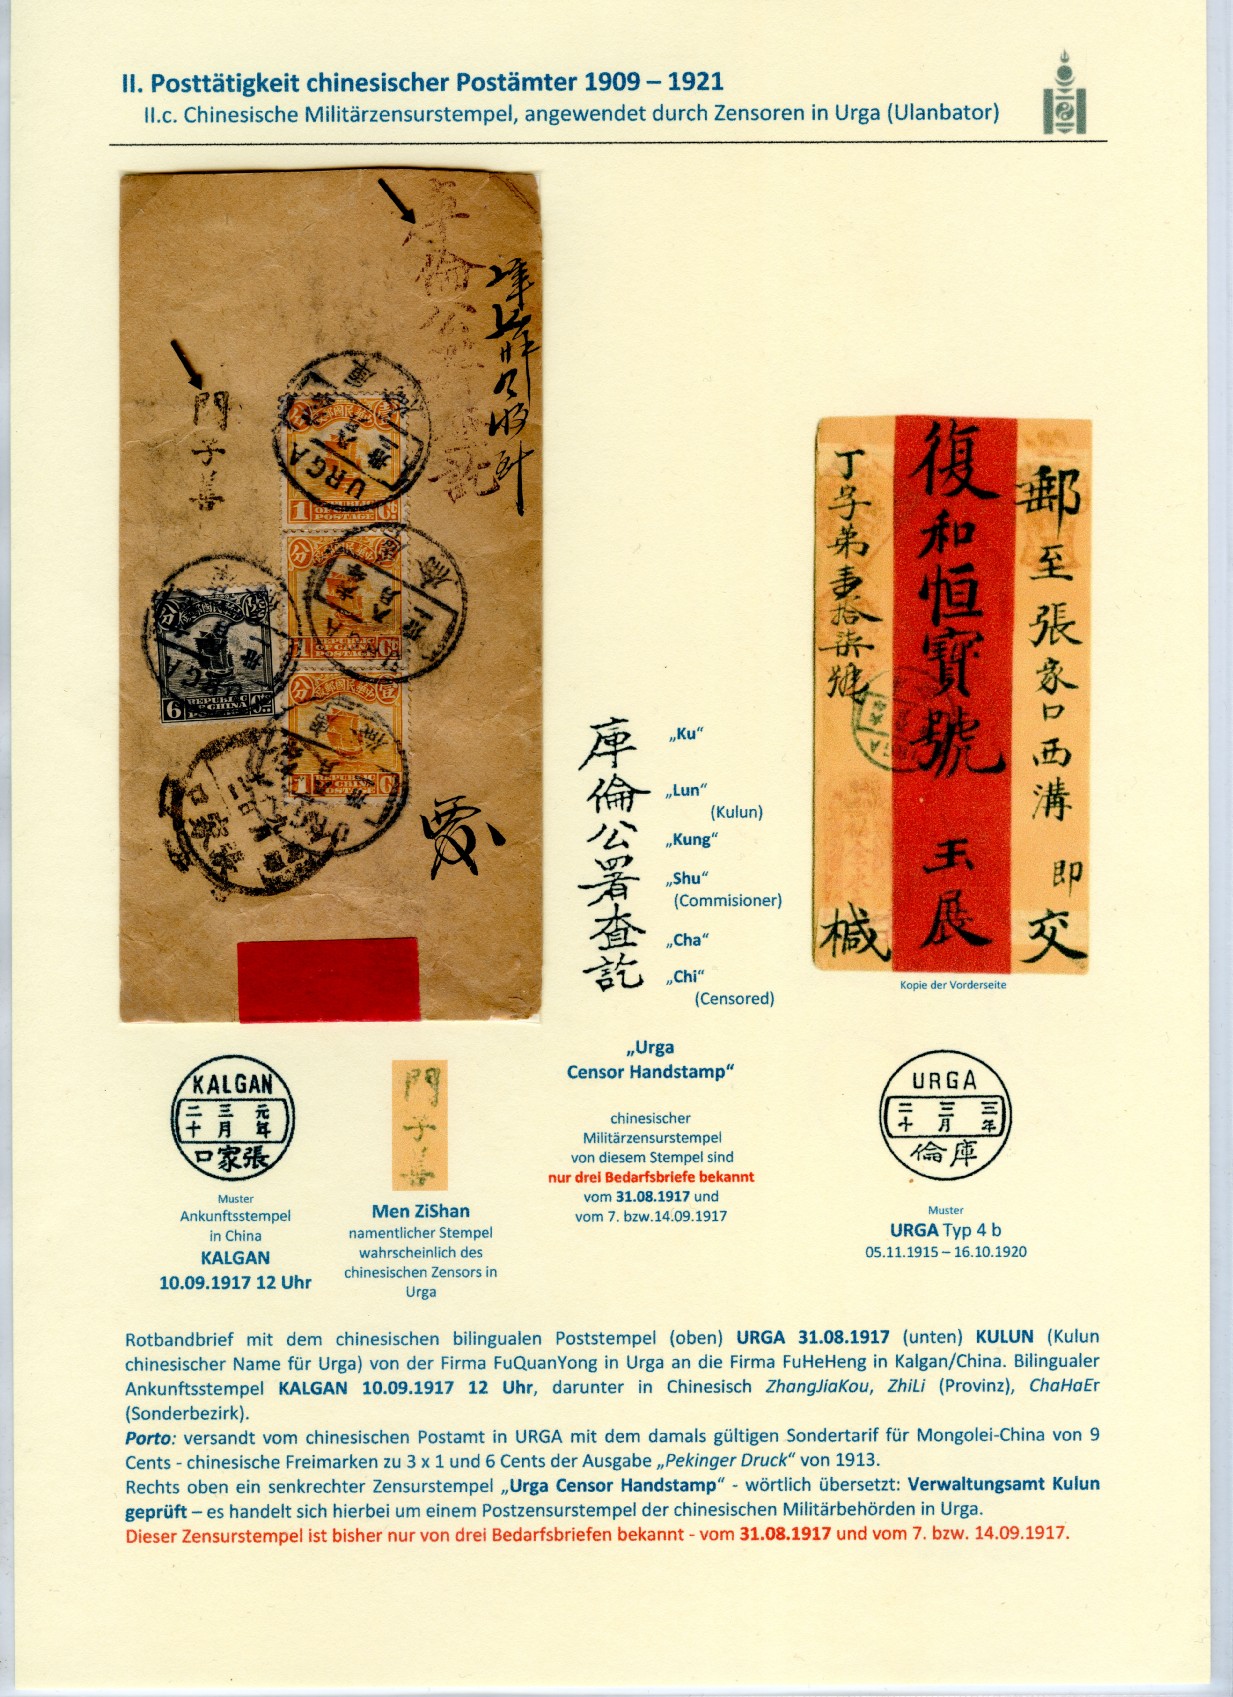 II. Posttätigkeit chinesischer Postämter 1909 – 1921
II.c. Chinesische Militärzensurstempel, angewendet durch Zensoren in Urga (Ulanbator)
庫倫公署查訖
門子善
URGA
1 REPUBLIC OF CHINA POSTAGE
URGA
1 REPUBLIC OF CHINA POSTAGE
URGA
6 REPUBLIC OF CHINA
1 REPUBLIC OF CHINA POSTAGE
URGA
庫 „Ku“
倫 „Lun“
(Kulun)
公 „Kung“
署 „Shu“
(Commisioner)
查 „Cha“
訖 „Chi“
(Censored)
郵至張家口西溝即交
復和恒寶號 玉展
丁字弟壹拾柒號 椷
Kopie der Vorderseite
KALGAN
元年
三月
二十
張家口
Muster
Ankunftsstempel
in China
KALGAN
10.09.1917 12 Uhr
門子善
Men ZiShan
namentlicher Stempel
wahrscheinlich des
chinesischen Zensors in
Urga
„Urga
Censor Handstamp“
chinesischer
Militärzensurstempel
von diesem Stempel sind
nur drei Bedarfsbriefe bekannt
vom 31.08.1917 und
vom 7. bzw.14.09.1917
URGA
三年
三月
二十
庫倫
Muster
URGA Typ 4 b
05.11.1915 – 16.10.1920
Rotbandbrief mit dem chinesischen bilingualen Poststempel (oben) URGA 31.08.1917 (unten) KULUN (Kulun
chinesischer Name für Urga) von der Firma FuQuanYong in Urga an die Firma FuHeHeng in Kalgan/China. Bilingualer
Ankunftsstempel KALGAN 10.09.1917 12 Uhr, darunter in Chinesisch ZhangJiaKou, ZhiLi (Provinz), ChaHaEr
(Sonderbezirk).
Porto: versandt vom chinesischen Postamt in URGA mit dem damals gültigen Sondertarif für Mongolei-China von 9
Cents - chinesische Freimarken zu 3 x 1 und 6 Cents der Ausgabe „Pekinger Druck“ von 1913.
Rechts oben ein senkrechter Zensurstempel „Urga Censor Handstamp“ - wörtlich übersetzt: Verwaltungsamt Kulun
geprüft – es handelt sich hierbei um einem Postzensurstempel der chinesischen Militärbehörden in Urga.
Dieser Zensurstempel ist bisher nur von drei Bedarfsbriefen bekannt - vom 31.08.1917 und vom 7. bzw. 14.09.1917.